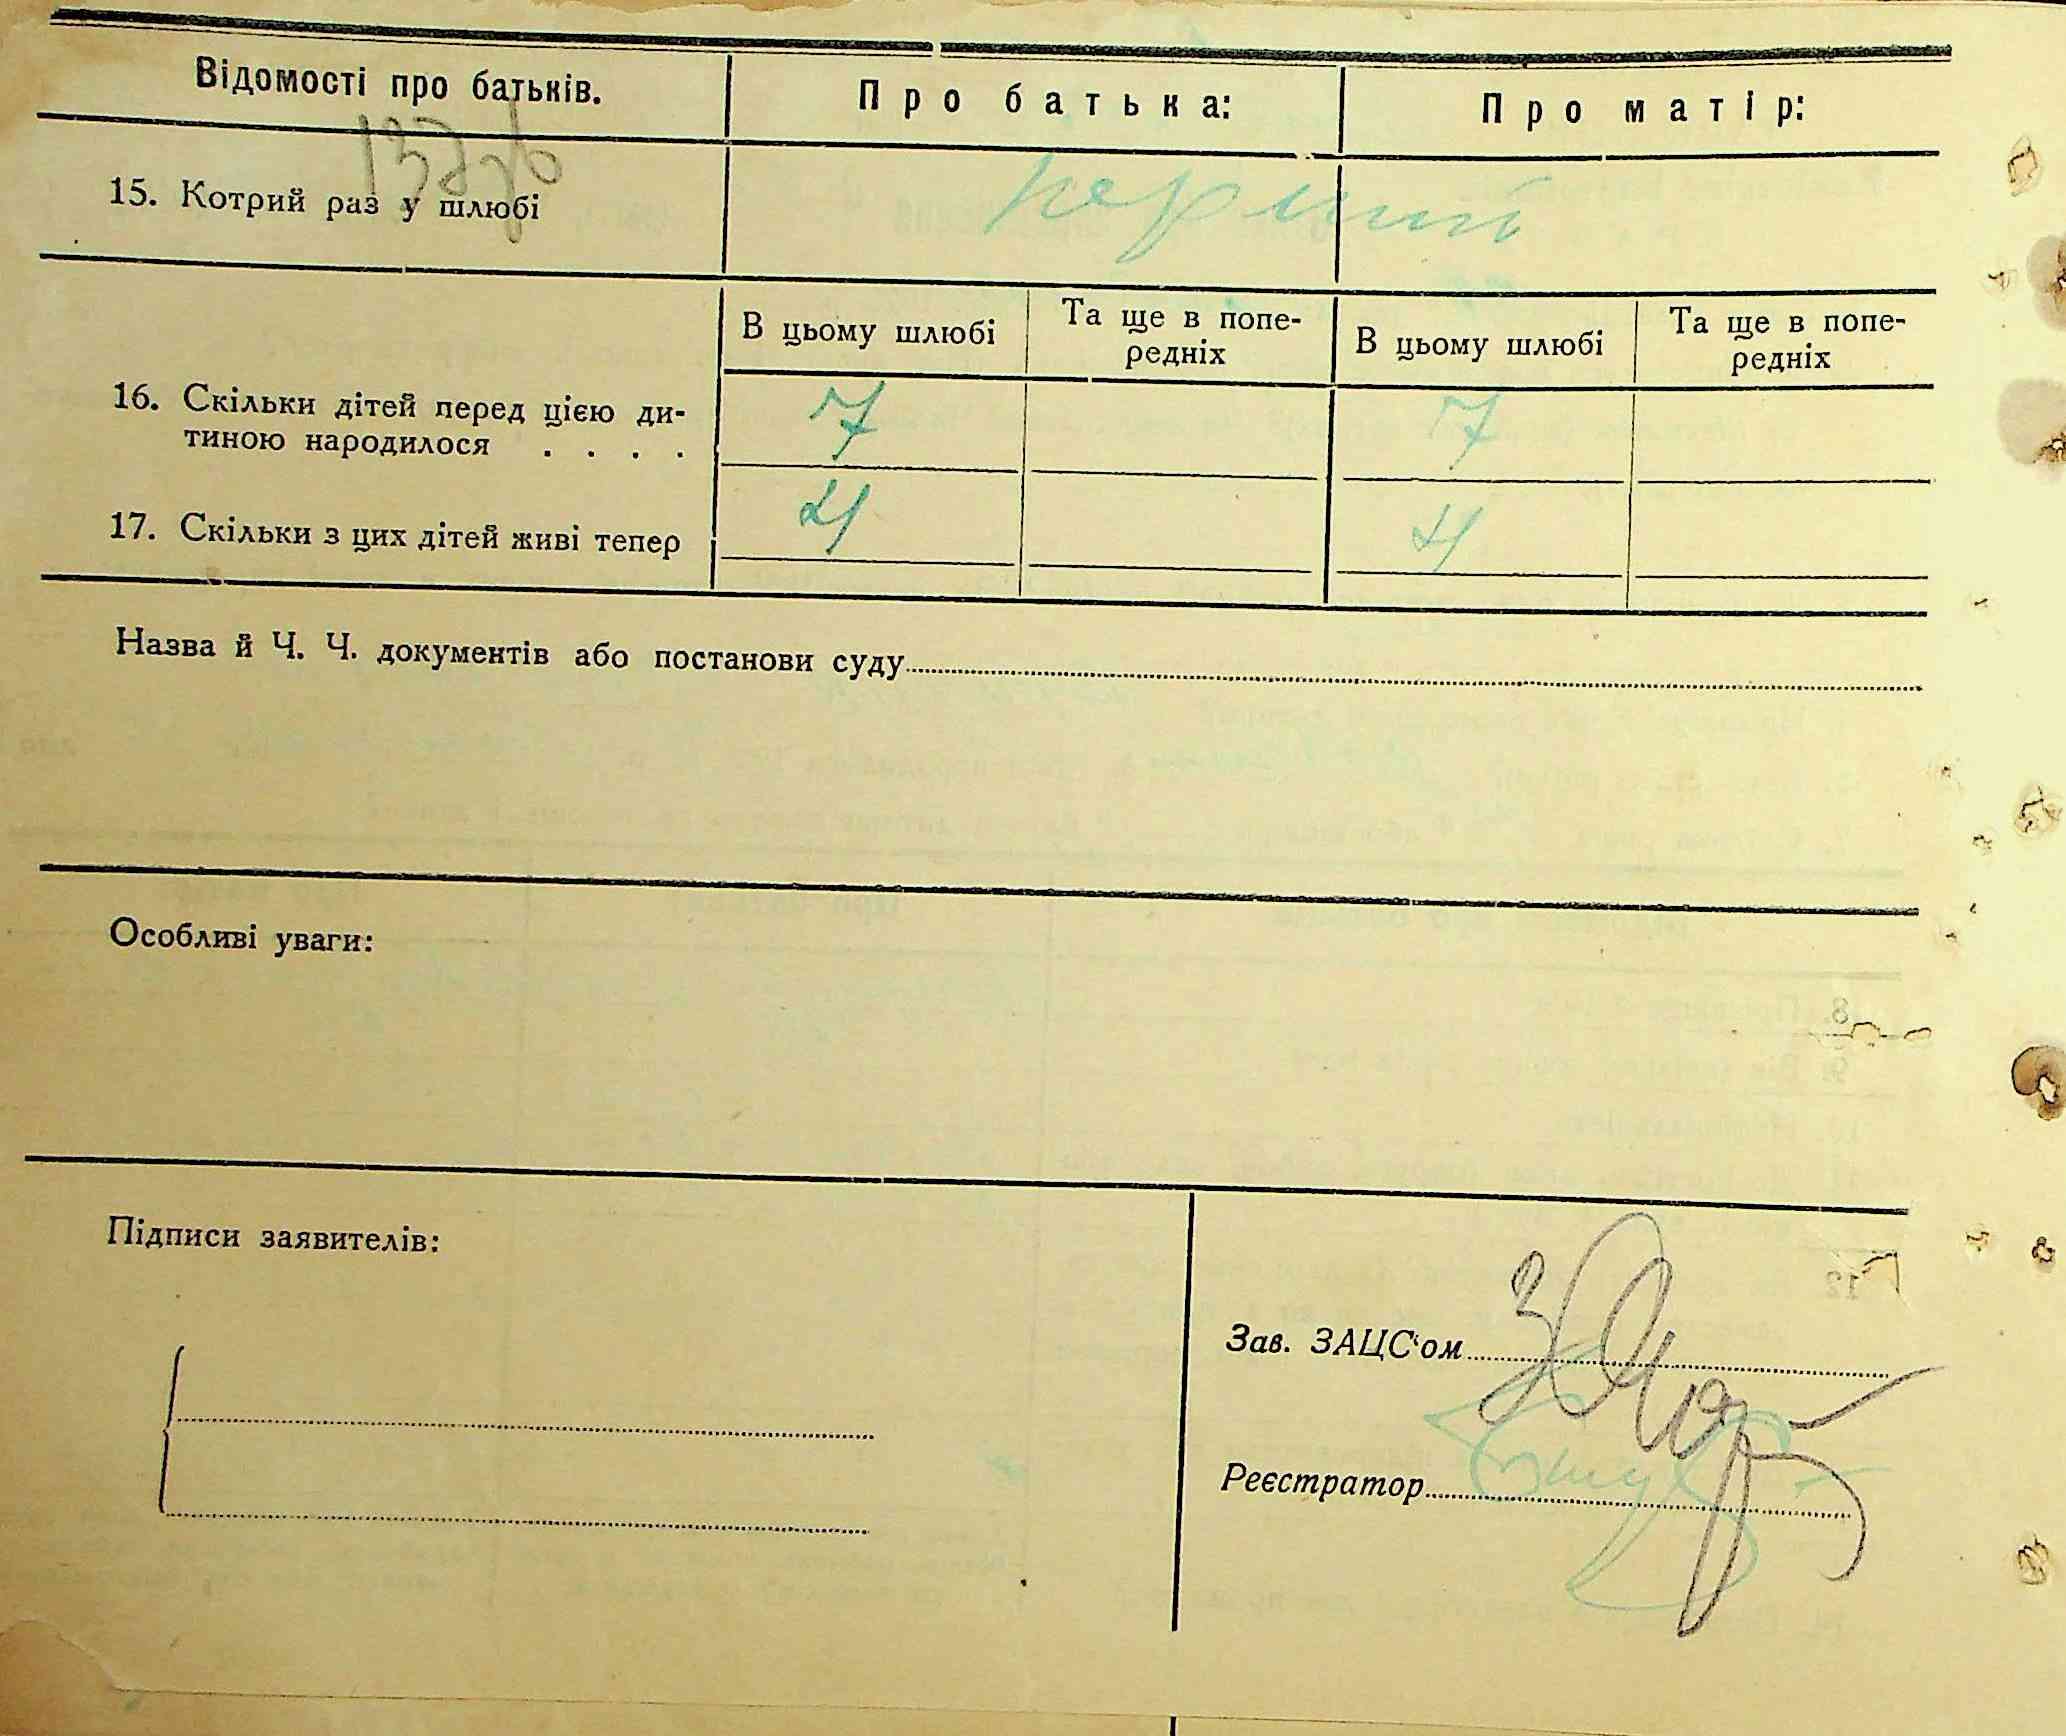 Відомості про батьків.
Про батька:
Про матір:
15. Котрий раз у шлюбі
перший
В цьому шлюбі
Та ще в попе-
редніх
В цьому шлюбі
Та ще в попе-
редніх
16. Скільки дітей перед цією ди-
тиною народилося . . . .
7
7
17. Скільки з цих дітей живі тепер
4
4
Назва й Ч. Ч. документів або постанови суду
Особливі уваги:
Підписи заявителів:
Зав. ЗАЦС'ом
Реєстратор